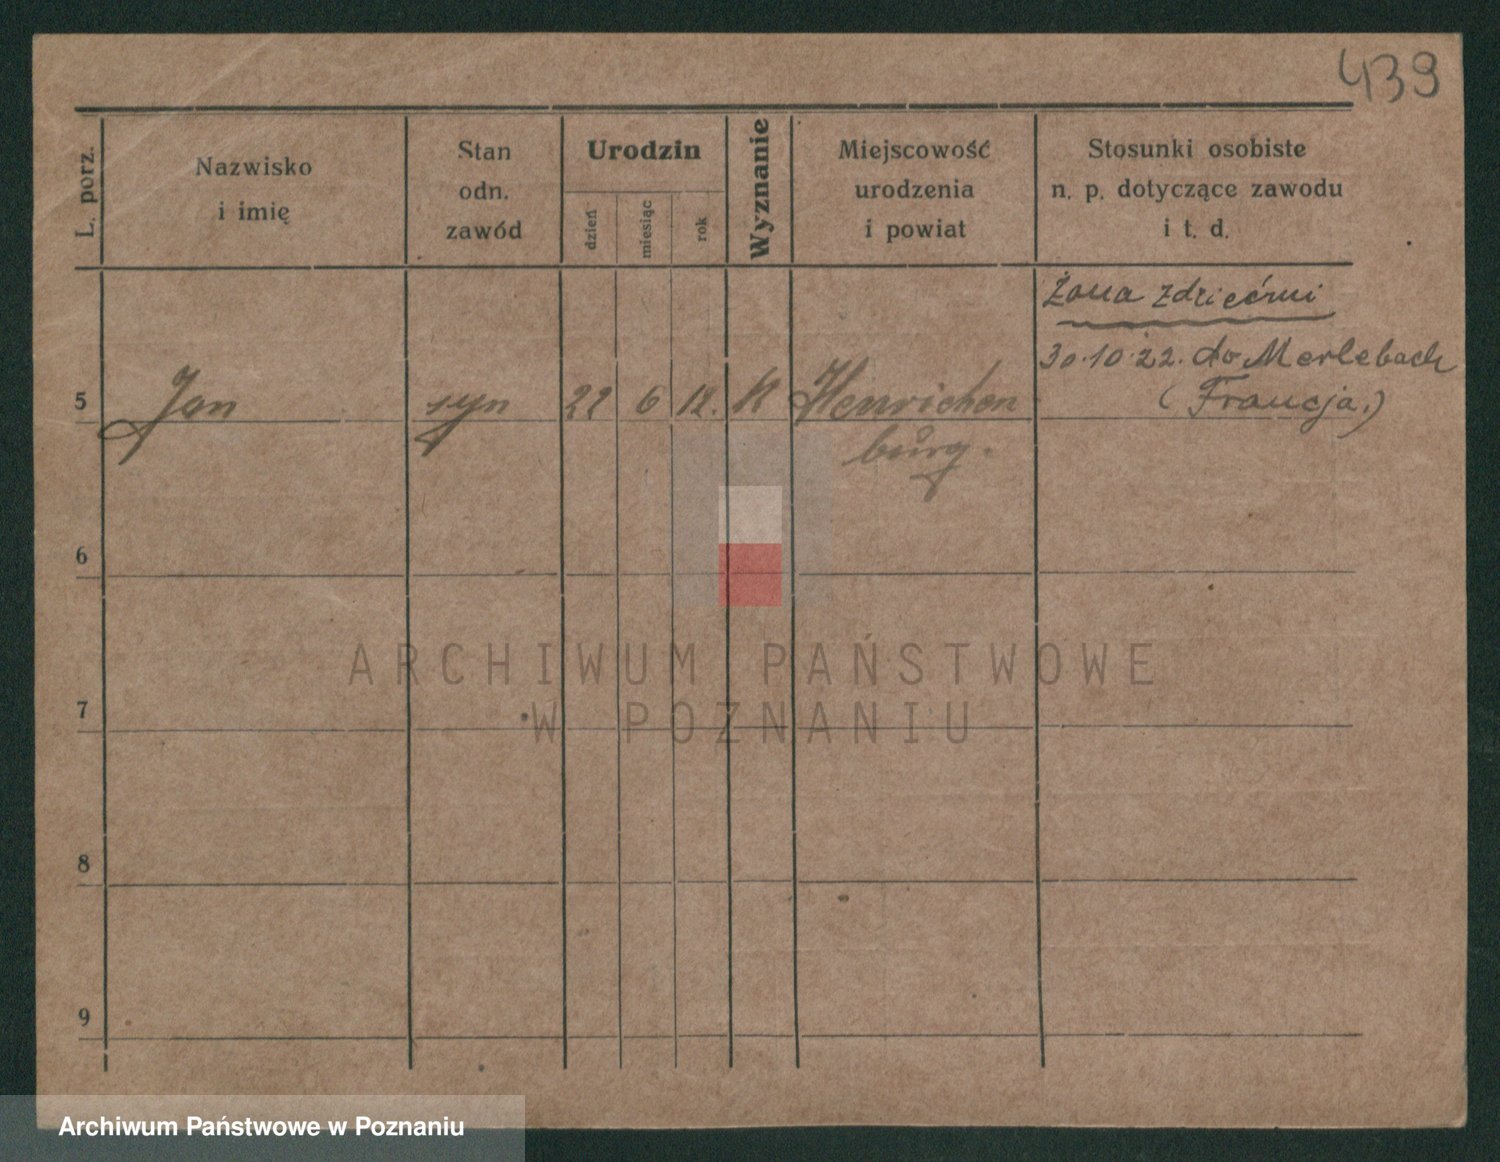 439
L. porz.
Nazwisko
i imię
Stan
odn.
zawód
Urodzin
dzień
miesiąc
rok
Wyznanie
Miejscowość
urodzenia
i powiat
Stosunki osobiste
n. p. dotyczące zawodu
i t. d.
Żona z dziećmi
30.10.22. do Merlebach
(Francja.)
5 Jan syn 22 6 12. K Henrichen
burg.
6
7
8
9
ARCHIWUM PAŃSTWOWE
W POZNANIU
Archiwum Państwowe w Poznaniu